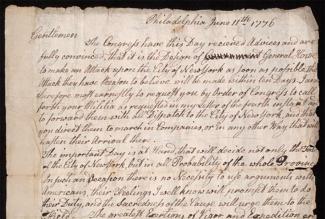 Philadelphia June 11th 1776
Gentlemen
The Congress have this Day received Advices and are
fully convinced, that it is the Design of General Howe
to make an Attack upon the City of New York as soon as possible. The
Attack they have Reason to believe will be made within ten Days. I am
therefore most earnestly to request you by Order of Congress to call
forth your Militia as requested in my Letter of the fourth inst. and
to forward them with all Dispatch to the City of New York, and that
you direct them to march in Companies, or in any other Way that will
hasten their Arrival there.
The important Day is at Hand, that will decide not only the Fate
of the City of New York, but in all Probability of the whole Province.
On such an Occasion there is no Necessity to use Arguments with
Americans; their Feelings I well know will prompt them to do
their Duty, and the Sacredness of the Cause will urge them to the
The greatest Exertions of Vigor and Expedition are